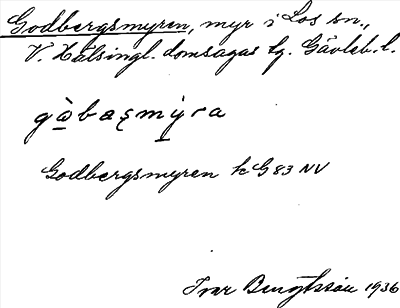 Godbergsmyren, myr i Los sn.,
V. Hälsingl. domsagas tg. Gävleb. l.
gòbaşmỳra
Godbergsmyren k G 83 NV
Ivar Bengtsson 1936